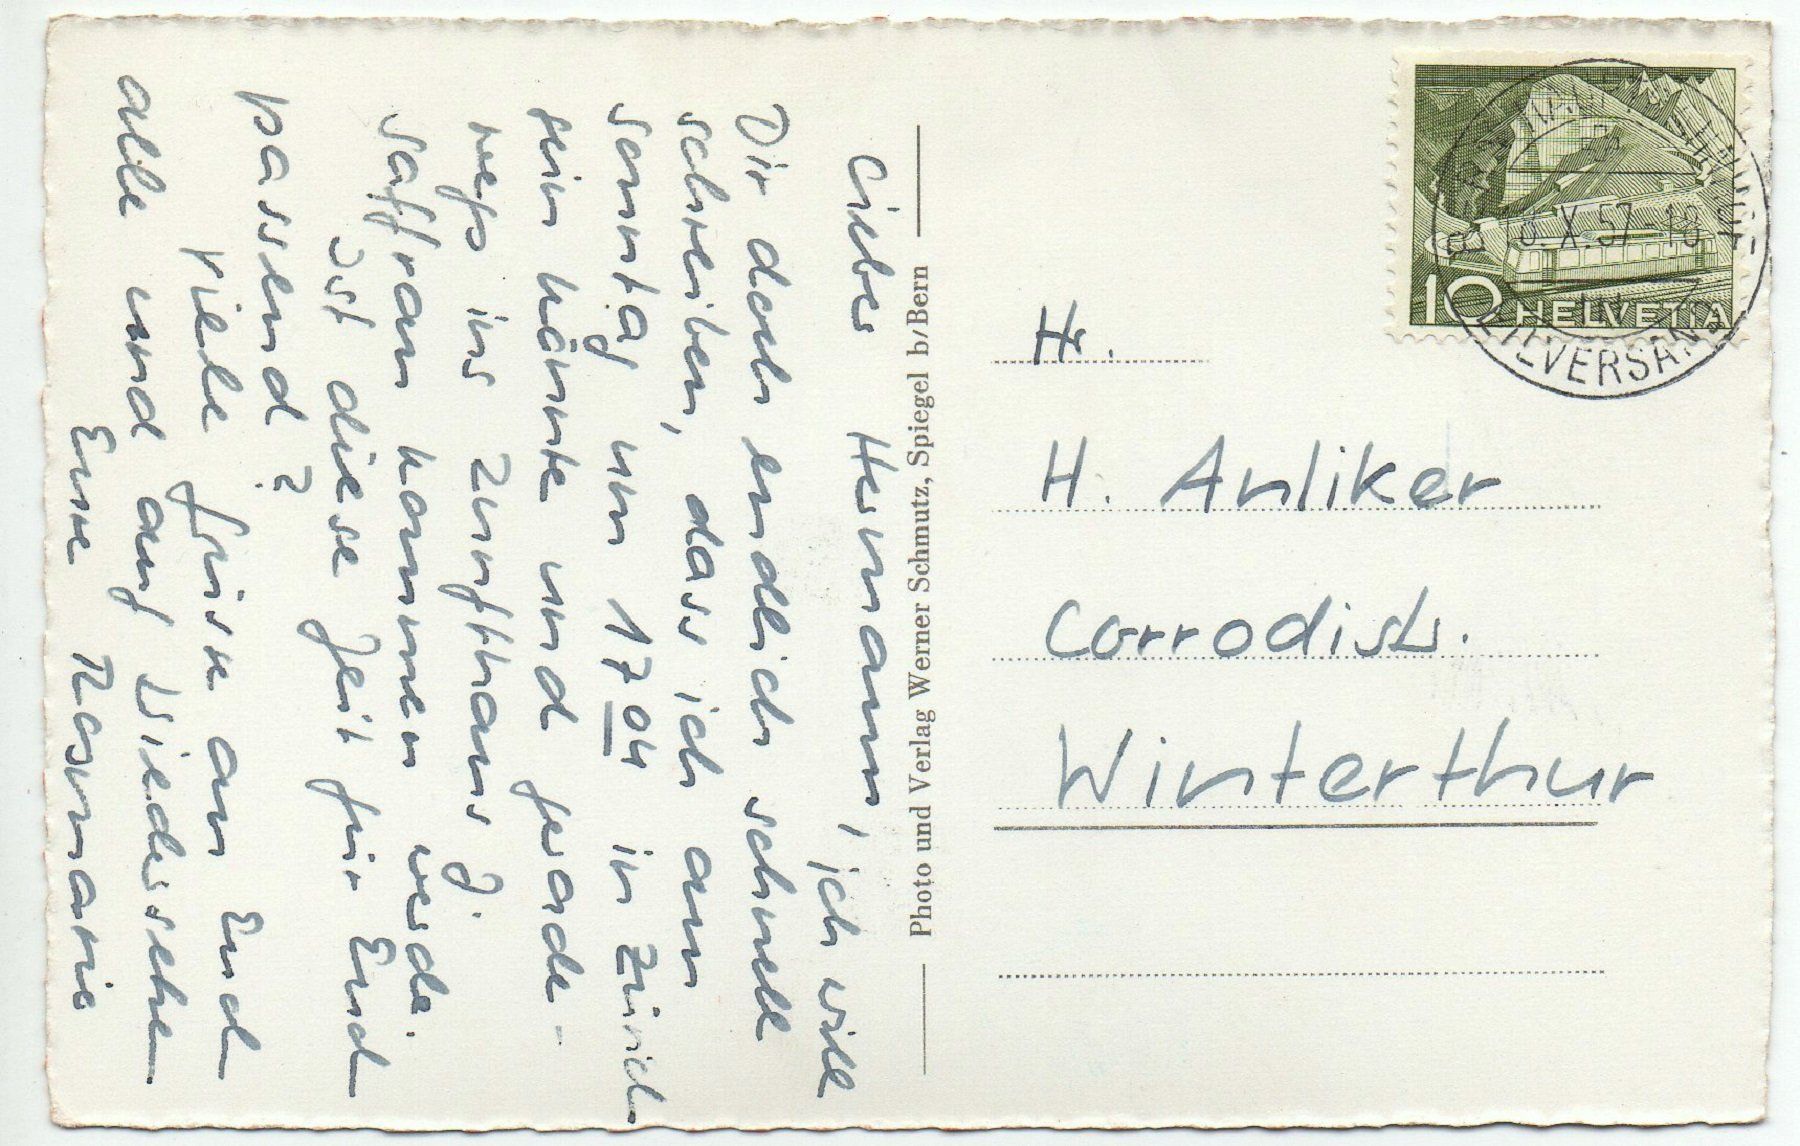 Lieber Hermann, ich will
Dir doch endlich schnell
schreiben, dass ich am
Sonntag um 17 04 in Zürich
sein könnte und gerade-
wegs ins Zunfthaus z.
Saffran kommen werde.
Ist diese Zeit für Euch
passend?
Viele Grüsse an Euch
alle und auf Wiedersehen
Eure Rosmarie
Photo und Verlag Werner Schmutz, Spiegel b/Bern
Hr.
H. Anliker
Corrodistr.
Winterthur
10 HELVETIA
X.57-18